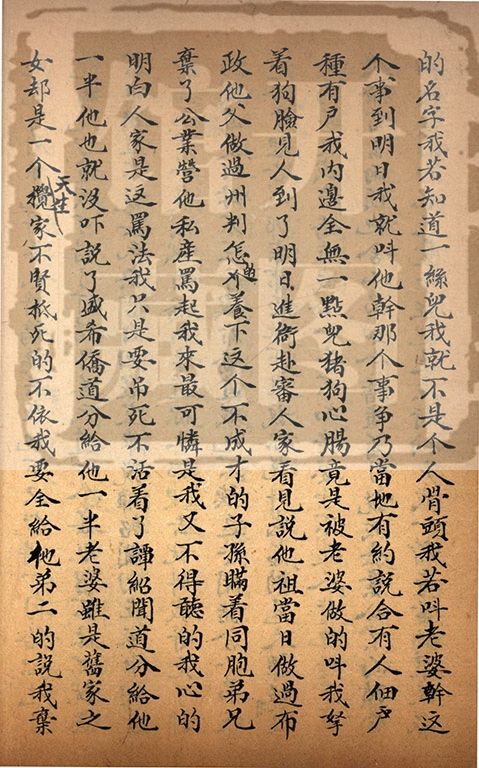 的名字我若知道一絲兒我就不是个人骨頭我若呌老婆幹这
个事到明日我就呌他幹那个事爭乃當地有約說合有人佃户
種有户我內邊全無一點兒猪狗心腸竟是被老婆做的呌我拏
着狗臉見人到了明日進衙赴審人家看見說他祖當日做過布
政他父做過州判怎的養下这个不成才的子孫瞞着同胞弟兄
棄了公業營他私産罵起我來最可憐是我又不得聽的我心的
明白人家是这罵法我只是要吊死不活着了譚紹聞道分給他
一半他也就没吓說了盛希僑道分給他一半老婆雖是舊家之
女却是一个天生攪家不賢抵死的不依我要全給他弟二的說我棄